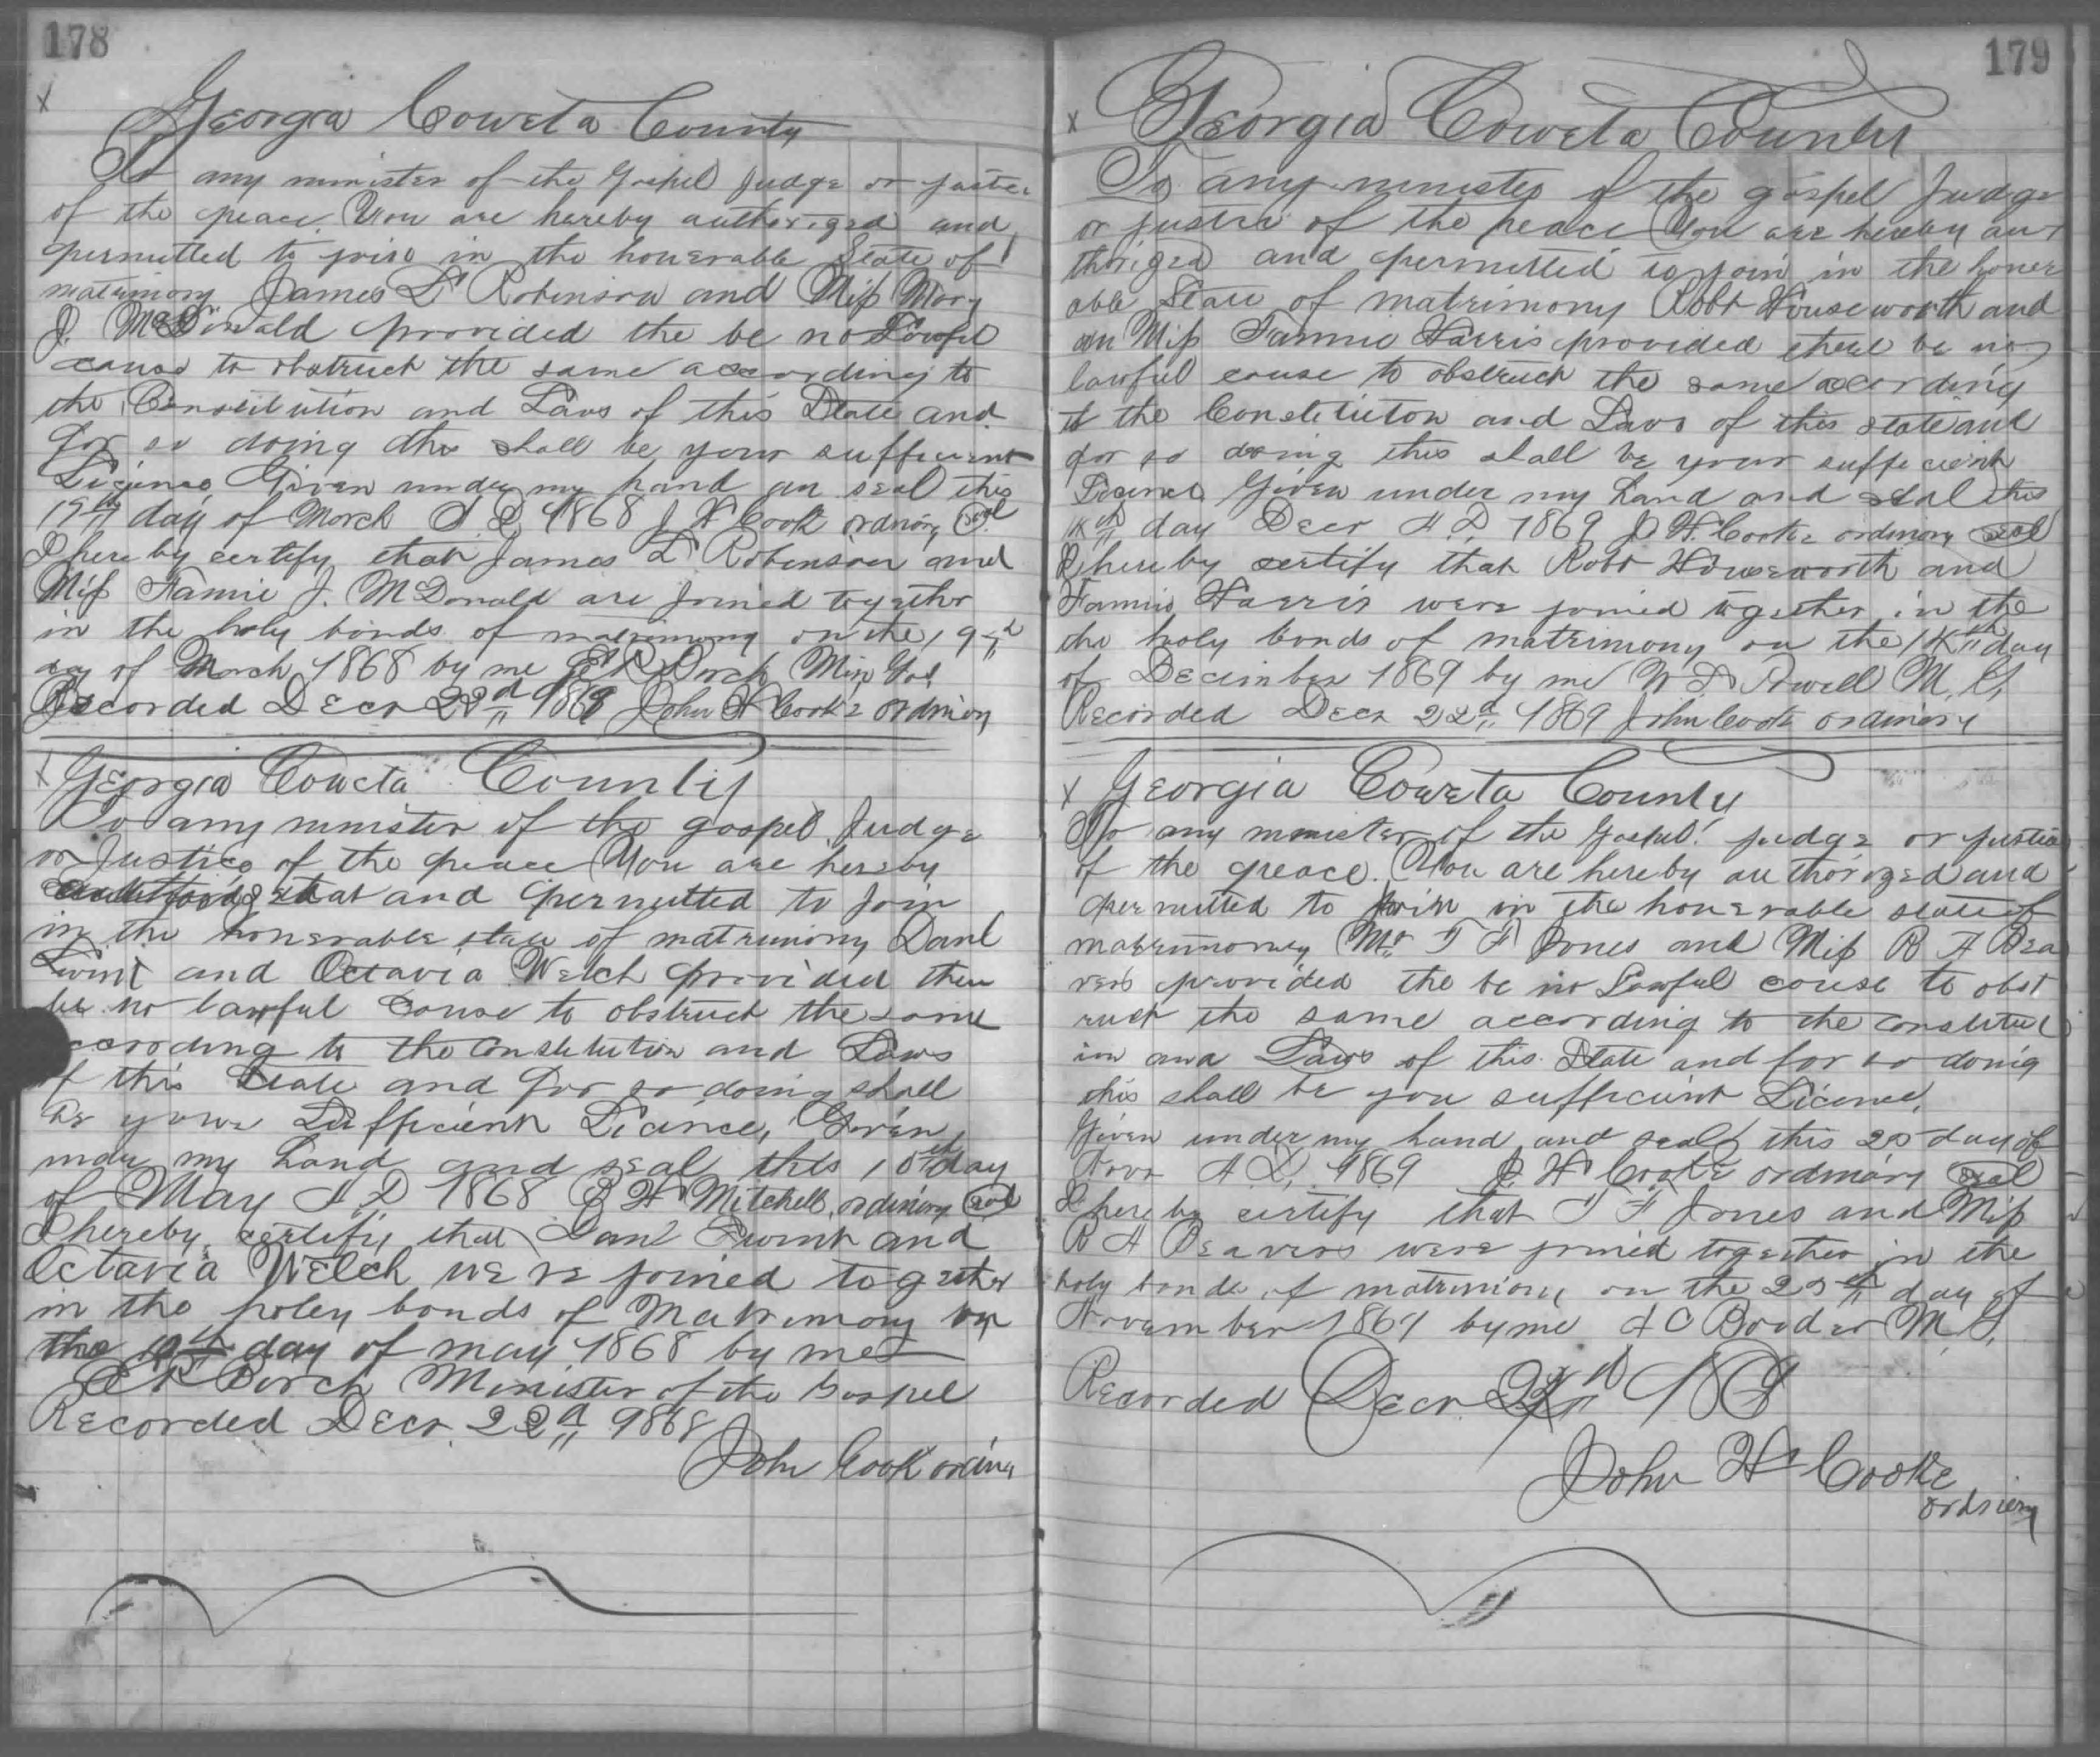 178
x
Georgia Coweta County
To any minister of the Gospel Judge or justice
of the peace. You are hereby authorized and
permitted to join in the honerable State of
matrimony James L Robinson and Miss Mary
J. McDonald provided the be no Lawful
cause to obstruct the same according to
the Constitution and Laws of this State and
for so doing this shall be your sufficient
License Given under my hand an seal this
19th day of March A D 1868 J H Cook ordinary seal
I hereby certify that James L Robinson and
Miss Famie J. McDonald are joined together
in the holy bonds of matrimony on the 19th
day of March 1868 by me Min Gos
Recorded Decr 22d 1869 John H Cook ordinary
x Georgia Coweta County
To any minister of the gospel Judge
or Justice of the peace You are hereby
and permitted to Join
in the honerable state of matrimony Danl
and Octavia Welch provided there
be no lawful cause to obstruct the same
ccording to the Constitution and Laws
of this State and for so doing shall
be your Sufficient Licence, Given
under my hand and seal this 10th day
of May A D 1868 B H Mitchell ordinary seal
I hereby certify that Danl and
Octavia Welch were joined together
in the holey bonds of Matrimony on
the day of may 1868 by me
Minister of the Gospel
Recorded Decr 22d 1868
John Cook
179
x
Georgia Coweta County
To any minister of the gospel Judge
or justice of the peace You are hereby au
thorized and permitted to join in the honer
able State of matrimony Robt Houseworth and
an Miss Fannie Harris provided there be no
lawful cause to obstruct the same according
to the Constitution and Laws of this state and
for so doing this shall be your sufficient
License Given under my hand and seal this
day Decr A D 1869 J H. Cooke ordinary seal
I hereby certify that Robt Houseworth and
Fannie Harris were joined together in the
the holy bonds of matrimony on the day
of December 1869 by me M. G.
Recorded Decr 22d 1869 John Cook ordinary
x Georgia Coweta County
To any minister of the Gospel judge or justice
of the peace. You are hereby authorized and
permitted to join in the honerable state of
matrimoney Mr T F Jones and Miss B A Bea
vers provided the be no Lawful couse to obst
ruct the same according to the constitut
ion and Laws of this State and for so doing
this shall be you sufficient License,
Given under my hand and seal this 25 day of
Novr A. D. 1869 J. H Cooke ordinary seal
I hereby certify that T F Jones and Miss
B A Beavers were joined together in the
holy bonds of matrimony on the 25th day of
November 1869 by me M. G.
Recorded Decr
John H Cooke
ordinary